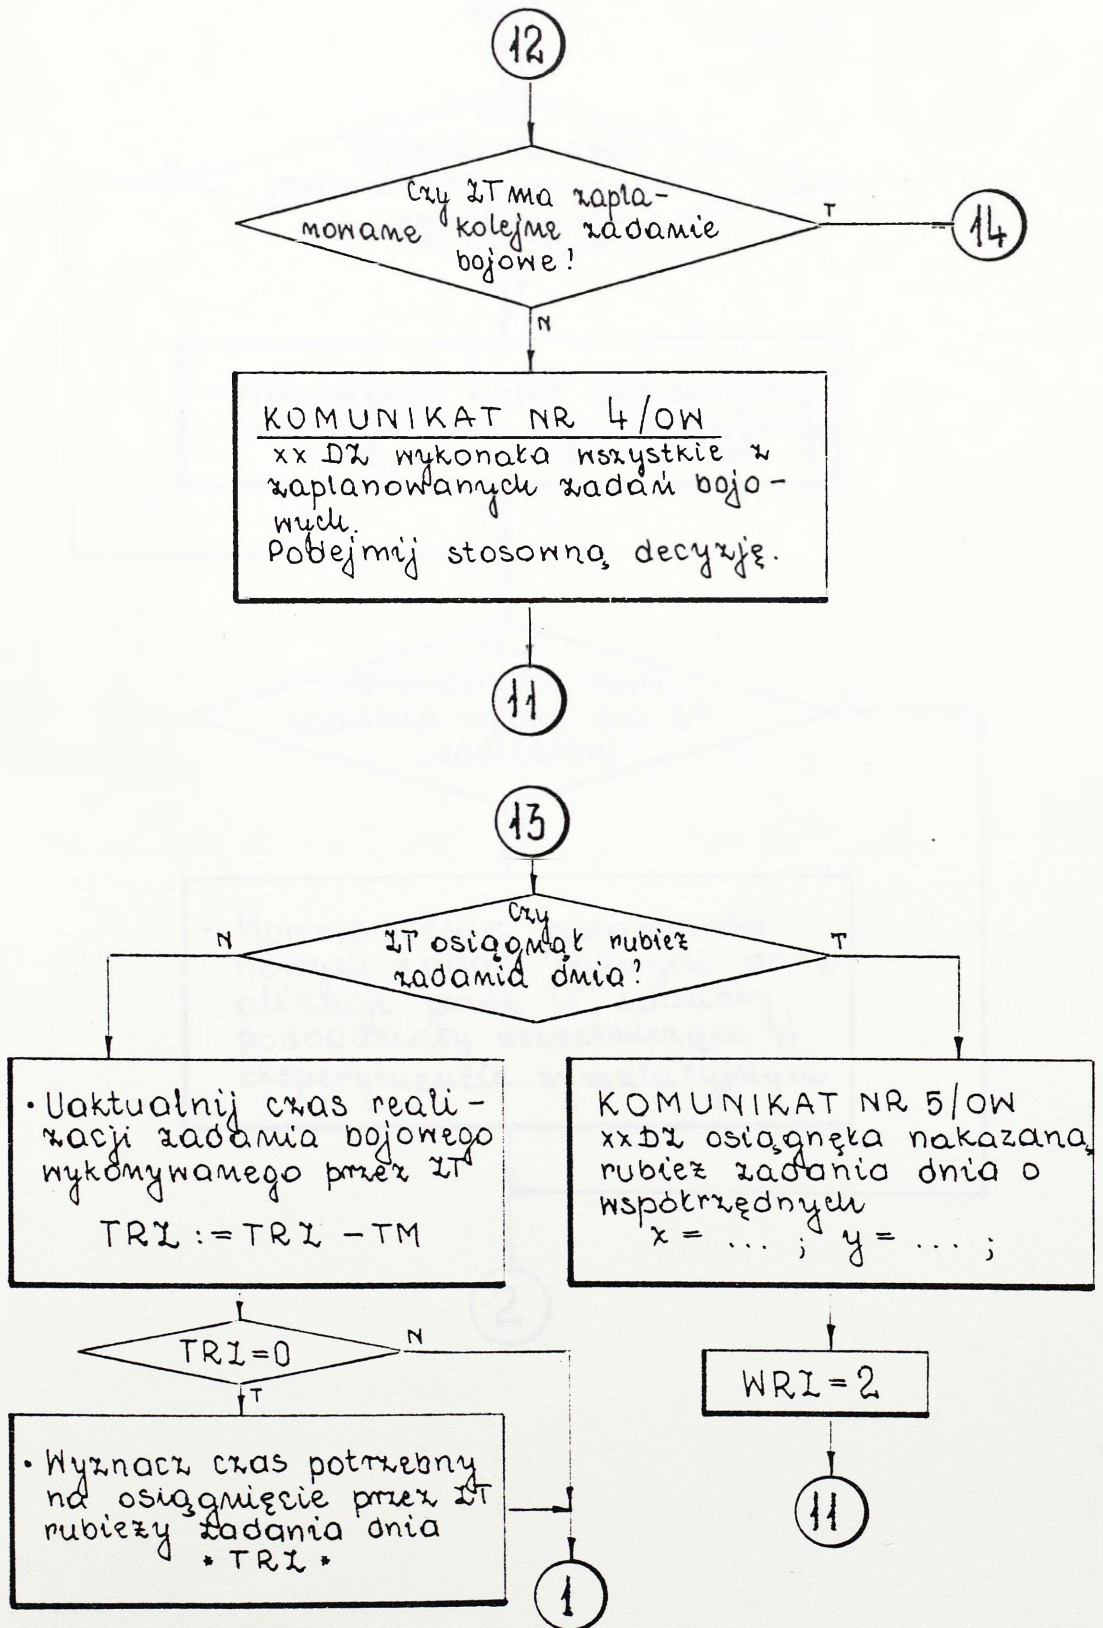 12
Czy ZT ma zapla-
nowane kolejne zadanie
bojowe?
T
14
N
KOMUNIKAT NR 4/OW
xx DZ wykonała wszystkie z
zaplanowanych zadań bojo-
wych.
Podejmij stosowną decyzję.
11
13
Czy
ZT osiągnął rubież
zadania dnia?
N
T
• Uaktualnij czas reali-
zacji zadania bojowego
wykonywanego przez ZT
TRZ := TRZ - TM
KOMUNIKAT NR 5/OW
xx DZ osiągnęła nakazaną
rubież zadania dnia o
współrzędnych
x = ... ; y = ... ;
TRZ=0
N
T
WRZ=2
• Wyznacz czas potrzebny
na osiągnięcie przez ZT
rubieży zadania dnia
* TRZ *
11
1